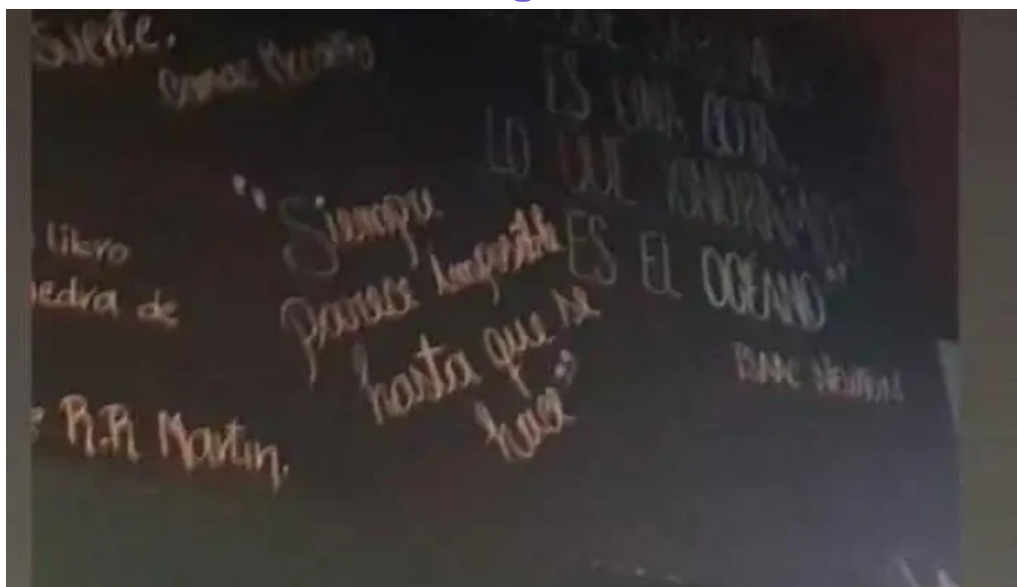 suerte.
Cormac McCarthy
libro
edra de
R.R Martin.
"Siempre
parece imposible
hasta que se
hace"
ES UNA GOTA,
LO QUE IGNORAMOS
ES EL OCÉANO"
Isaac Newton